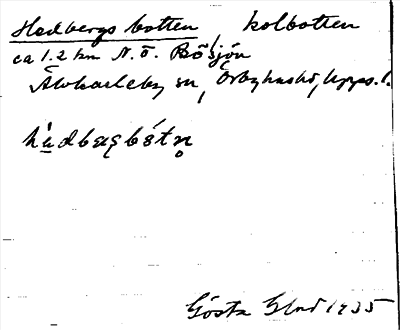 Hedbergs botten, kolbotten
ca 1.2 km N. Ö. Bösjön
Älvkarleby sn, Örbyhus hd, Upps. l.
Gösta 1935